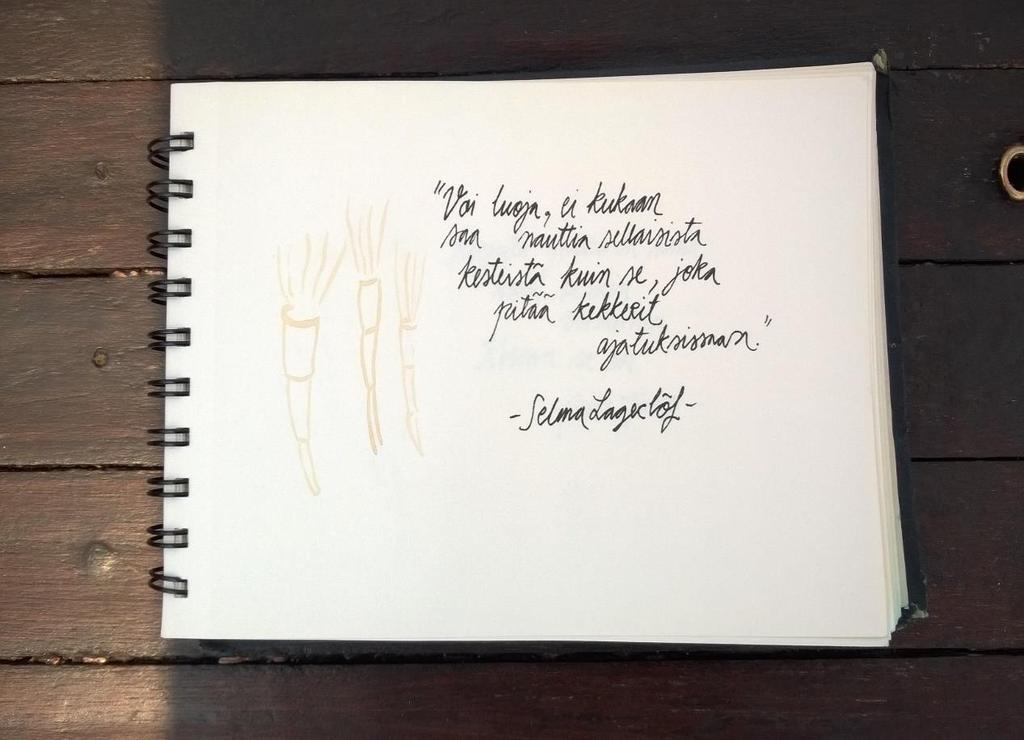 "Voi luoja, ei kukaan
saa nauttia sellaisista
kesteistä kuin se, joka
pitää kekkerit
ajatuksissaan."
- Selma Lagerlöf -